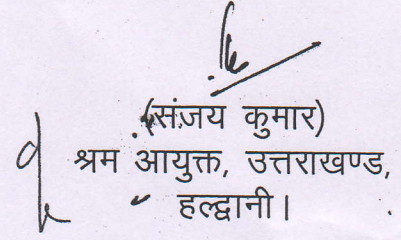 (संजय कुमार)
श्रम आयुक्त, उत्तराखण्ड,
हल्द्वानी।